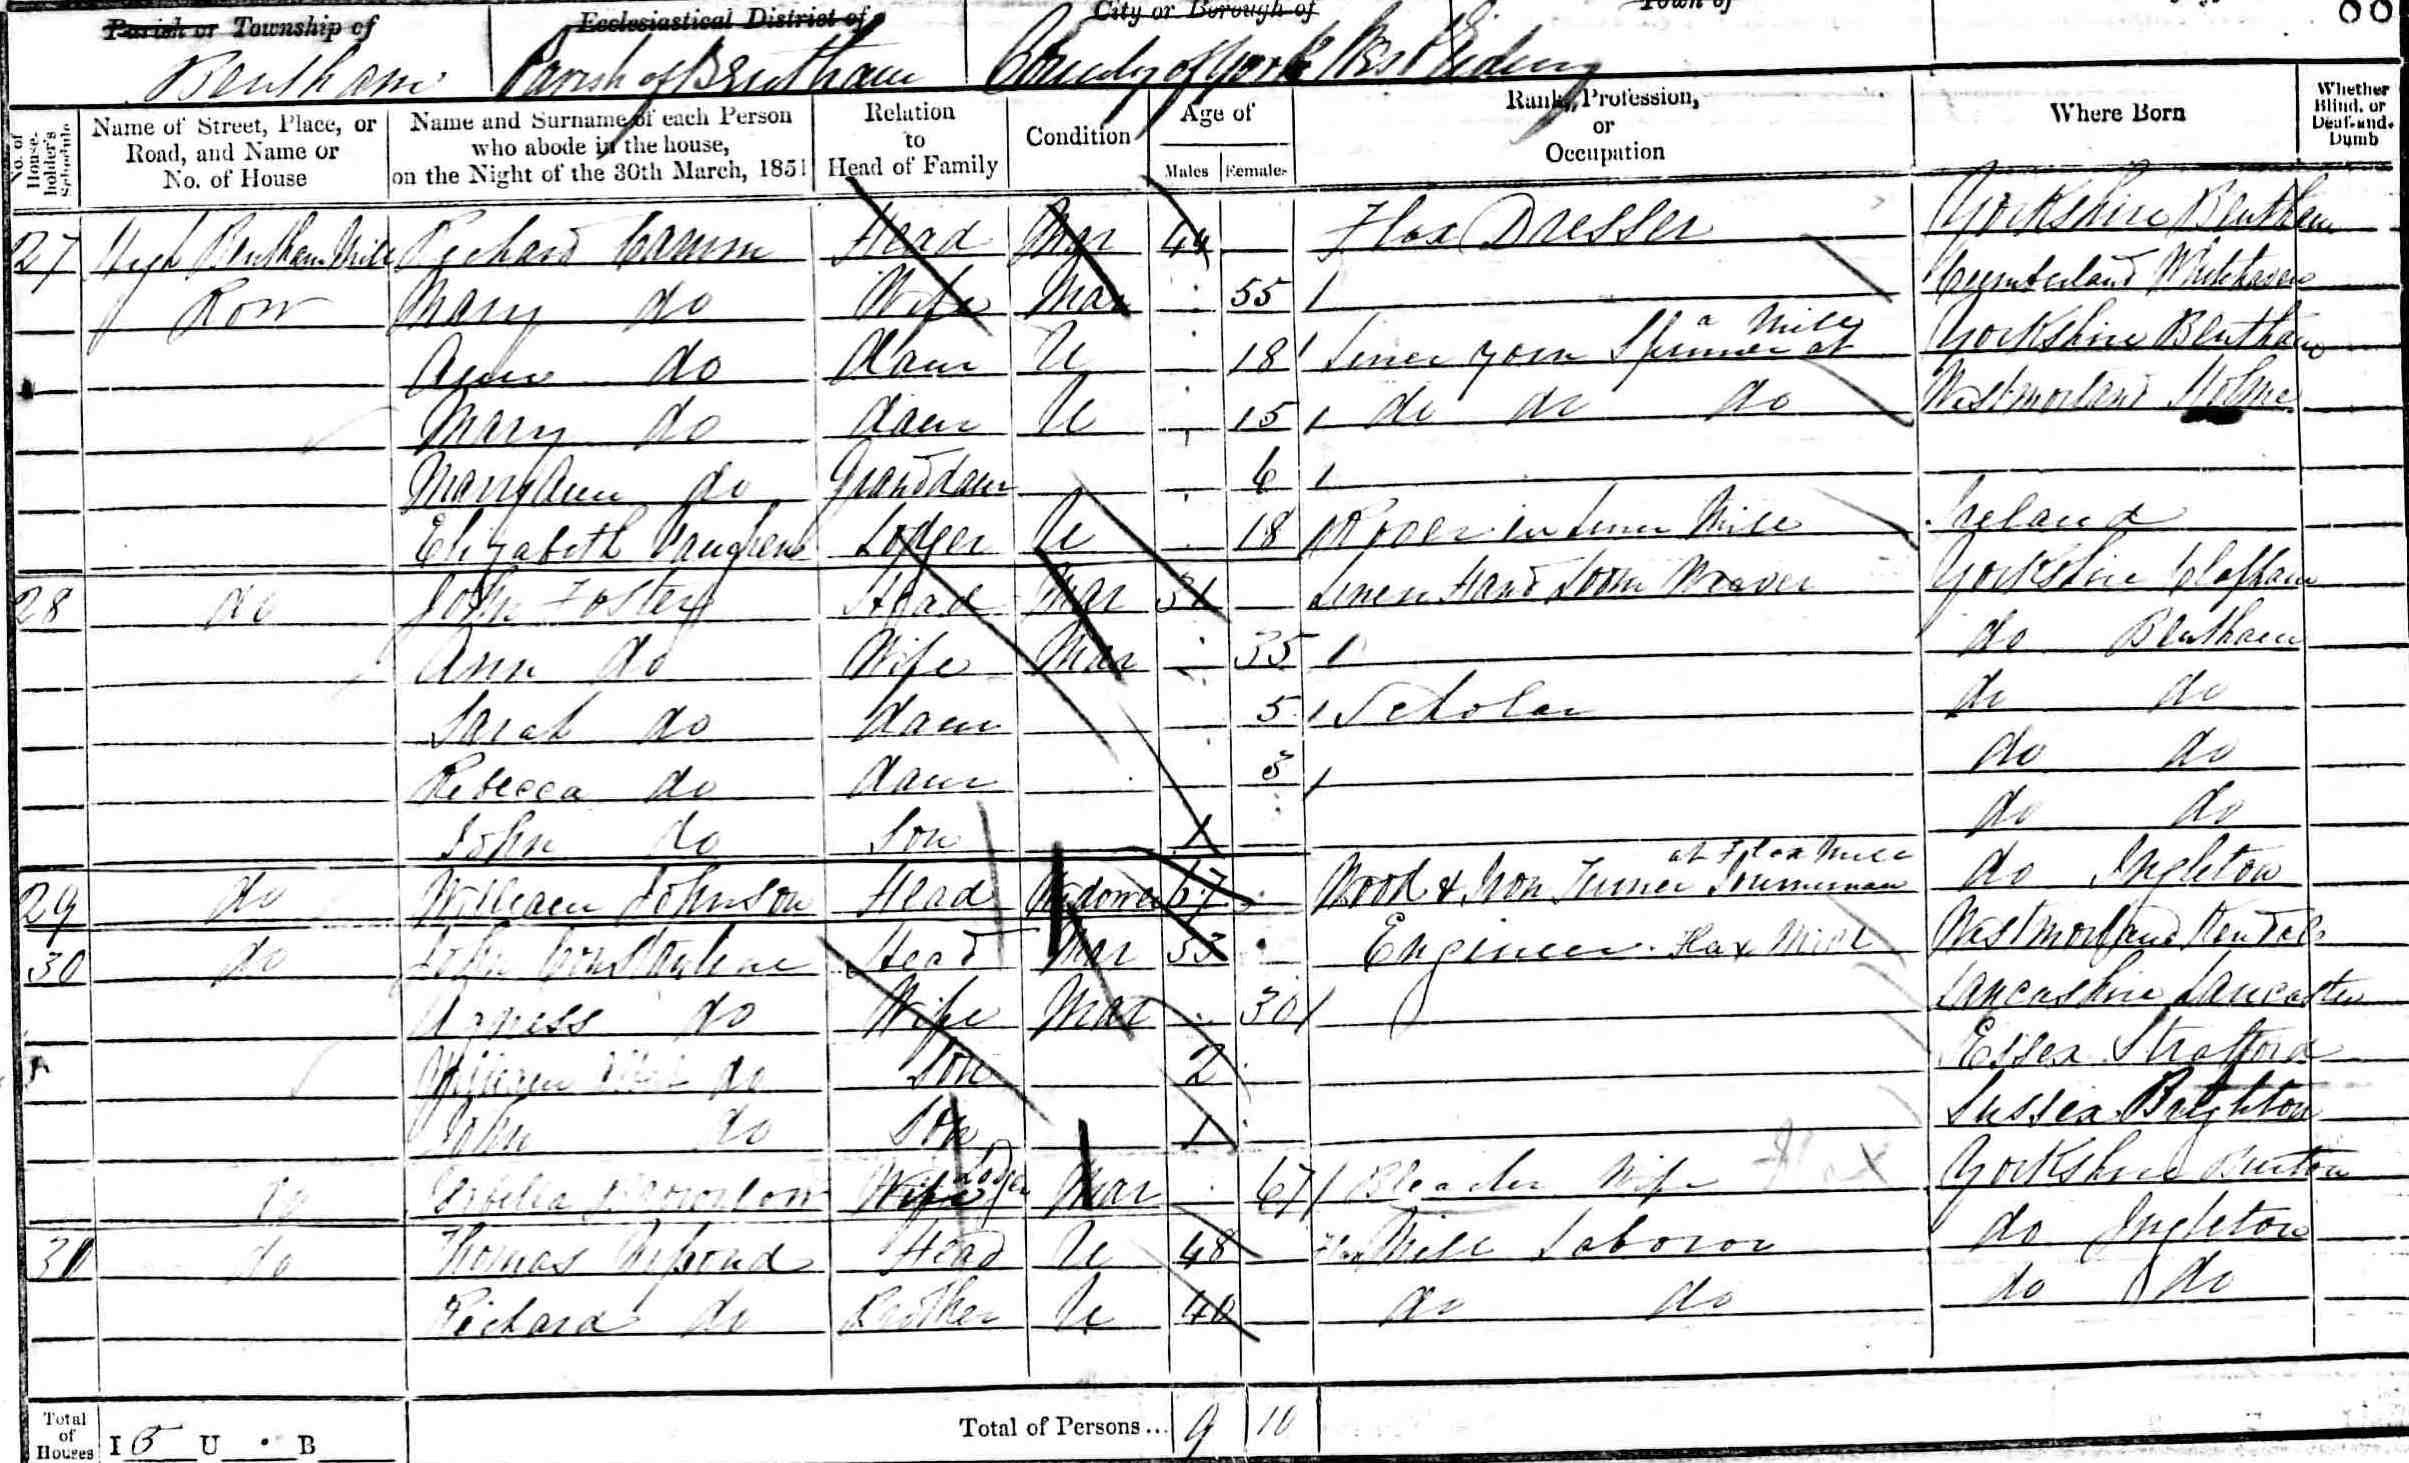 Parish or Township of Ecclesiastical District of City or Borough of Town of
Bentham Parish of Bentham County of York West Riding
No. of House-holder's Schedule Name of Street, Place, or Road, and Name or No. of House Name and Surname of each Person who abode in the house, on the Night of the 30th March, 1851 Relation to Head of Family Condition Age of Males Females Rank, Profession, or Occupation Where Born Whether Blind, or Deaf-and-Dumb
27 High Bentham Mill Richard Camm Head Mar 44 Flax Dresser Yorkshire Bentham
Row Mary do Wife Mar 55 Cumberland Whitehaven
Ann do daur U 18 Linen yarn Spinner at a Mill Yorkshire Bentham
Mary do daur U 15 do do do Westmorland Holme
Mary Ann do Granddaur 6
Elizabeth Lodger U 18 in Linen Mill Ireland
28 do John Foster Head Mar 31 Linen Hand Loom Weaver Yorkshire Clapham
Ann do Wife Mar 35 do Bentham
Sarah do daur 5 Scholar do do
Rebecca do daur 3 do do
John do Son 1 do do
29 do William Johnson Head Widower 67 Wood & Iron Turner Journeman at Flax Mill do Ingleton
30 do John Constantine Head Mar 53 Engineer Flax Mill Westmorland Kendal
Agness do Wife Mar 30 Lancashire Lancaster
William do Son 2 Essex Stratford
John do Son 1 Sussex Brighton
do Wife Lodger Mar 67 Wife Flax Yorkshire Burton
31 do Thomas Head U 48 Flax Mill Laboror do Ingleton
Richard do Brother U 40 do do do do
Total of Houses I 5 U B Total of Persons... 9 10